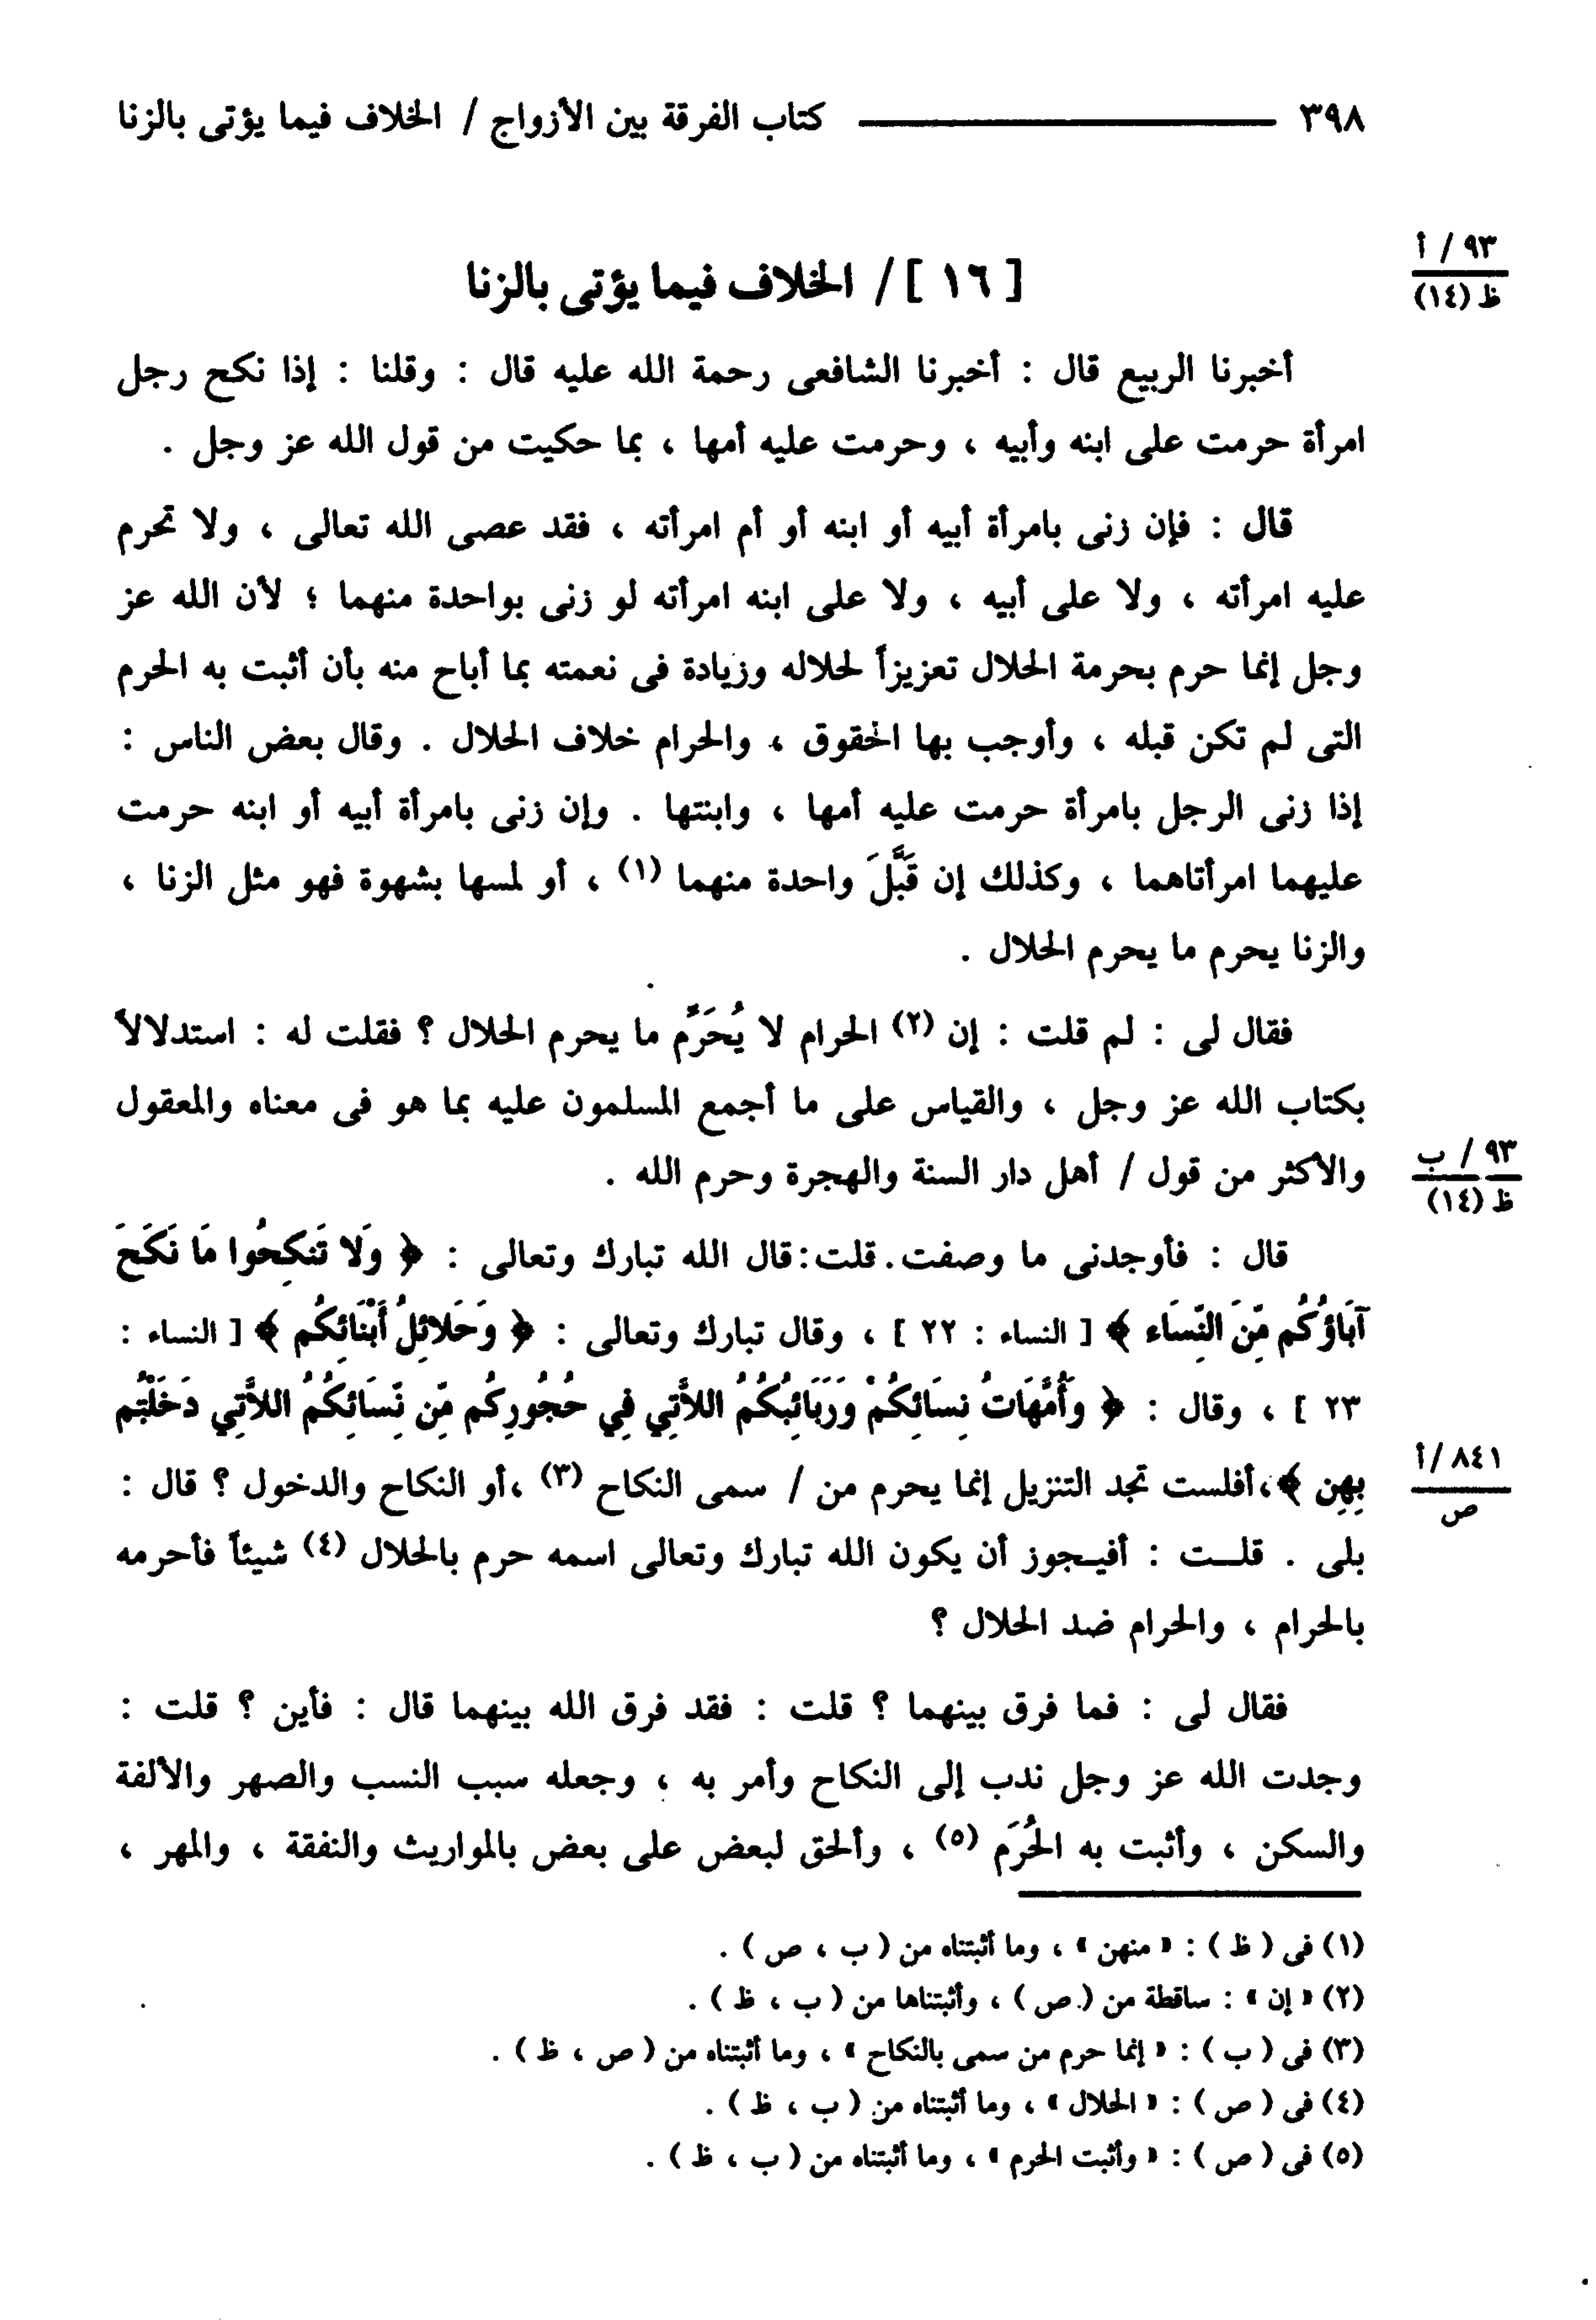 ٣٩٨ ــــــــــــــــــ كتاب الفرقة بين الأزواج / الخلاف فيما يؤتى بالزنا
٩٣ / أ
ظ (١٤)
[ ١٦ ] / الخلاف فيما يؤتى بالزنا
أخبرنا الربيع قال : أخبرنا الشافعى رحمة الله عليه قال : وقلنا : إذا نكح رجل
امرأة حرمت على ابنه وأبيه ، وحرمت عليه أمها ، بما حكيت من قول الله عز وجل .
قال : فإن زنى بامرأة أبيه أو ابنه أو أم امرأته ، فقد عصى الله تعالى ، ولا تحرم
عليه امرأته ، ولا على أبيه ، ولا على ابنه امرأته لو زنى بواحدة منهما ؛ لأن الله عز
وجل إنما حرم بحرمة الحلال تعزيزاً لحلاله وزيادة فى نعمته بما أباح منه بأن أثبت به الحرم
التى لم تكن قبله ، وأوجب بها الحقوق ، والحرام خلاف الحلال . وقال بعض الناس :
إذا زنى الرجل بامرأة حرمت عليه أمها ، وابنتها . وإن زنى بامرأة أبيه أو ابنه حرمت
عليهما امرأتاهما ، وكذلك إن قَبَّلَ واحدة منهما (١) ، أو لمسها بشهوة فهو مثل الزنا ،
والزنا يحرم ما يحرم الحلال .
فقال لى : لم قلت : إن (٢) الحرام لا يُحَرِّم ما يحرم الحلال ؟ فقلت له : استدلالاً
بكتاب الله عز وجل ، والقياس على ما أجمع المسلمون عليه بما هو فى معناه والمعقول
والأكثر من قول / أهل دار السنة والهجرة وحرم الله .
٩٣ / ب
ظ (١٤)
قال : فأوجدنى ما وصفت. قلت:قال الله تبارك وتعالى : ﴿ وَلا تَنكِحُوا مَا نَكَحَ
آبَاؤُكُم مِّنَ النِّسَاء ﴾ [ النساء : ٢٢ ] ، وقال تبارك وتعالى : ﴿ وَحَلائِلُ أَبْنَائِكُم ﴾ [ النساء :
٢٣ ] ، وقال : ﴿ وَأُمَّهَاتُ نِسَائِكُمْ وَرَبَائِبُكُمُ اللاَّتِي فِي حُجُورِكُم مِّن نِّسَائِكُمُ اللاَّتِي دَخَلْتُم
بِهِن ﴾،أفلست تجد التنزيل إنما يحرم من / سمى النكاح (٣) ،أو النكاح والدخول ؟ قال :
٨٤١ /أ
ص
بلى . قلــت : أفيـجوز أن يكون الله تبارك وتعالى اسمه حرم بالحلال (٤) شيئاً فأحرمه
بالحرام ، والحرام ضد الحلال ؟
فقال لى : فما فرق بينهما ؟ قلت : فقد فرق الله بينهما قال : فأين ؟ قلت :
وجدت الله عز وجل ندب إلى النكاح وأمر به ، وجعله سبب النسب والصهر والألفة
والسكن ، وأثبت به الحُرَم (٥) ، وألحق لبعض على بعض بالمواريث والنفقة ، والمهر ،
(١) فى ( ظ ) : « منهن » ، وما أثبتناه من ( ب ، ص ) .
(٢) « إن » : ساقطة من ( ص ) ، وأثبتناها من ( ب ، ظ ) .
(٣) فى ( ب ) : « إنما حرم من سمى بالنكاح » ، وما أثبتناه من ( ص ، ظ ) .
(٤) فى ( ص ) : « الحلال » ، وما أثبتناه من ( ب ، ظ ) .
(٥) فى ( ص ) : « وأثبت الحرم » ، وما أثبتناه من ( ب ، ظ ) .